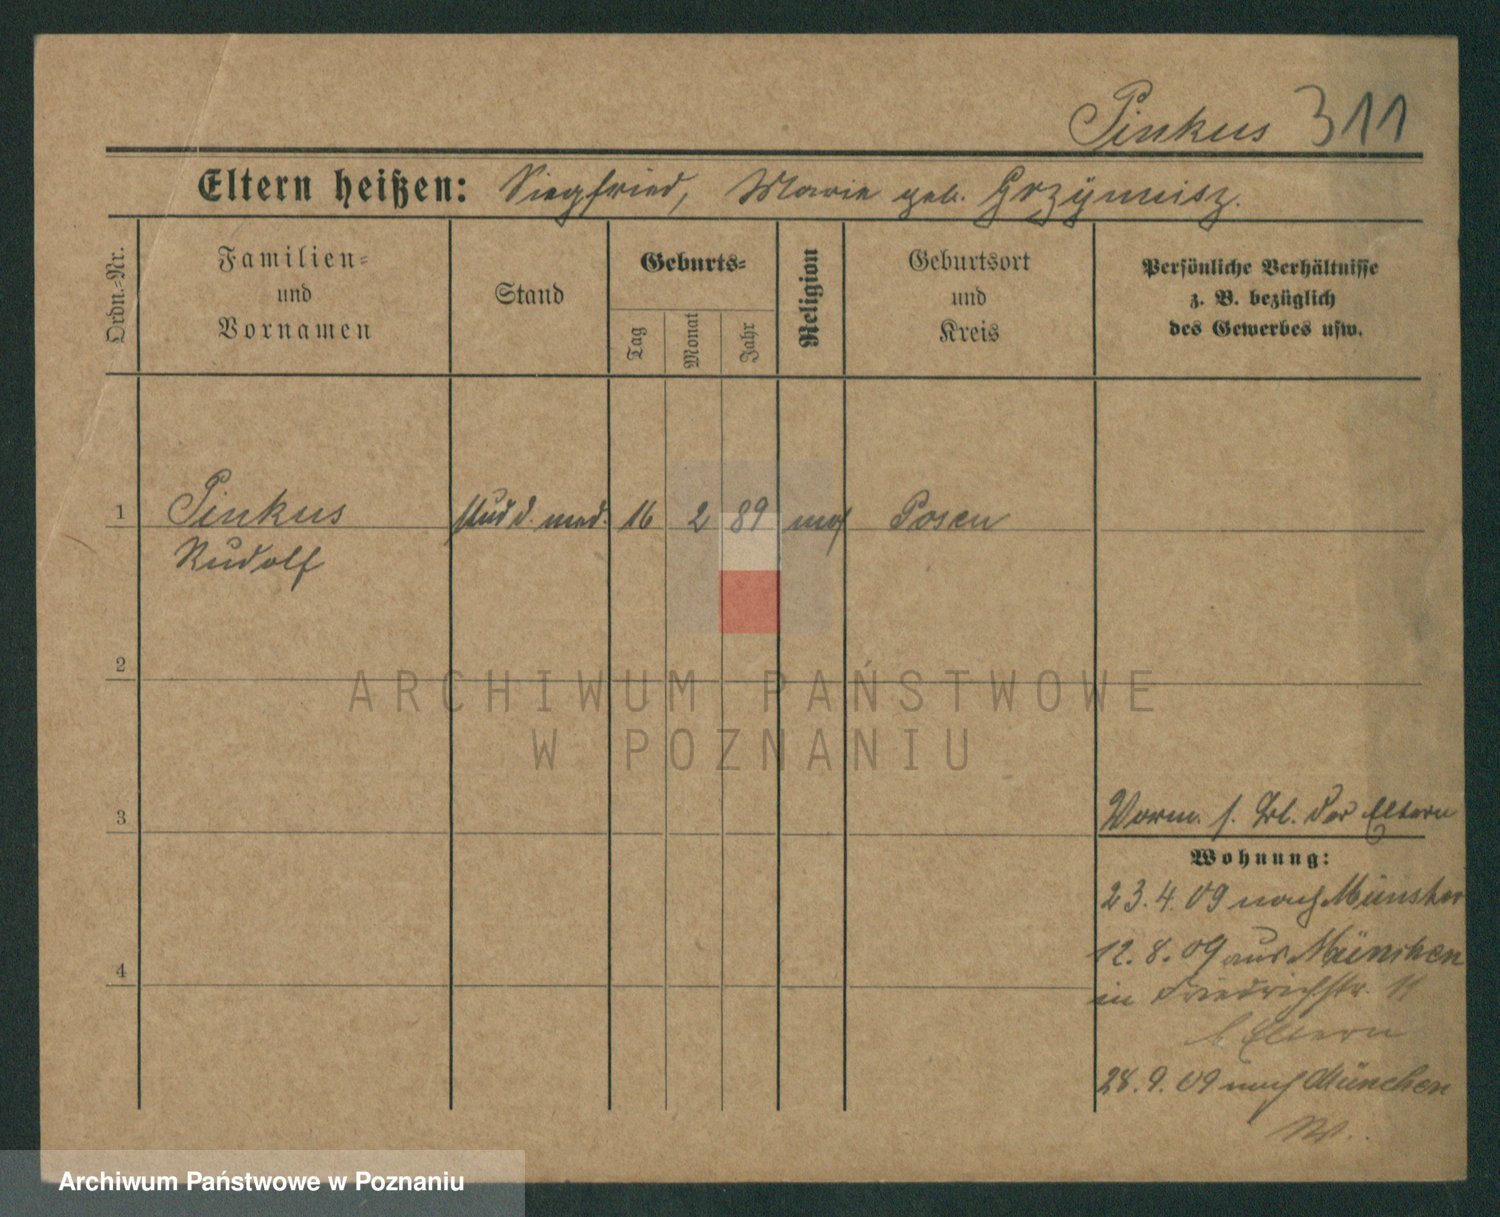 Pinkus 311
Eltern heißen: Siegfried, Marie geb. Grzymisz.
Ordn.-Nr.
Familien-
und
Vornamen
Stand
Geburts-
Tag
Monat
Jahr
Religion
Geburtsort
und
Kreis
Persönliche Verhältnisse
z. B. bezüglich
des Gewerbes usw.
1 Pinkus stud d. med. 16 2 89 mos Posen
Rudolf
2
ARCHIWUM PAŃSTWOWE
W POZNANIU
3
Vorm. s. Bl. der Eltern
Wohnung:
23.4.09 nach Münster
12.8.09 aus München
4
in Friedrichstr. 11
b Eltern
28.9.09 nach München
Archiwum Państwowe w Poznaniu